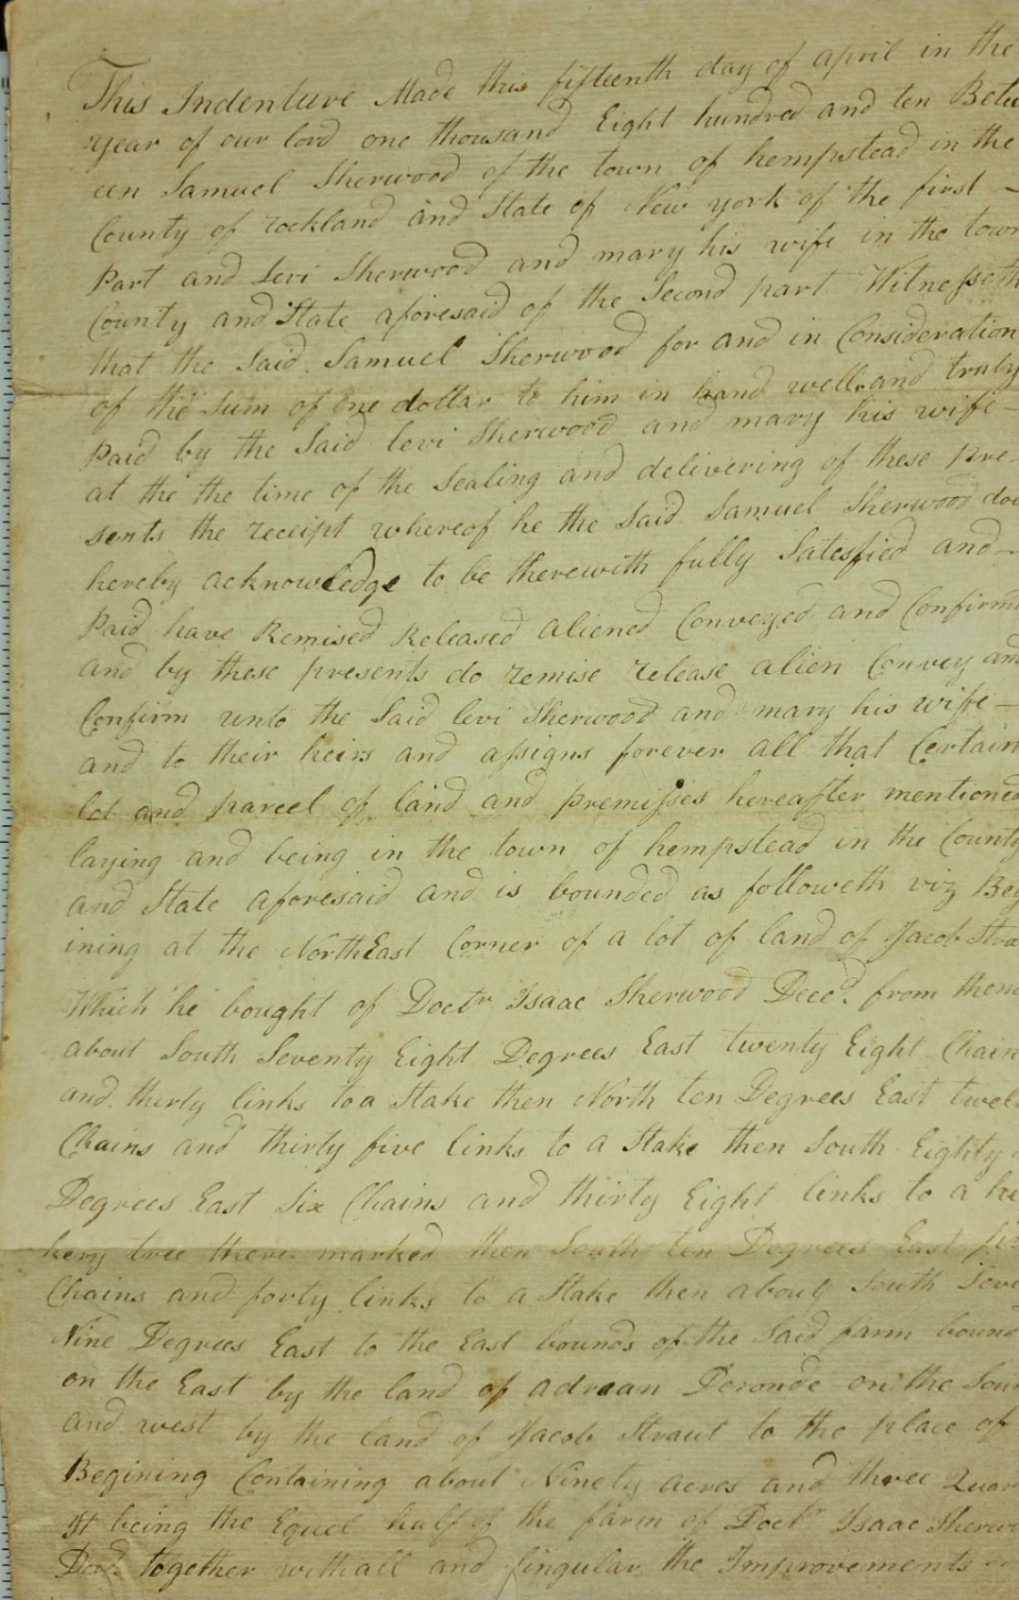 This Indenture Made this fifteenth day of april in the
year of our lord one thousand Eight hundred and ten Betw
een Samuel Sherwood of the town of hempstead in the
County of rockland and State of New york of the first –
Part and Levi Sherwood and mary his wife in the town
County and State aforesaid of the Second part Witnesseth
that the Said Samuel Sherwood for and in Consideration
of the Sum of one dollar to him in hand well and truly
Paid by the Said levi Sherwood and mary his wife –
at the the time of the Sealing and delivering of these pre-
sents the receipt whereof he the Said Samuel Sherwood doe
hereby acknowledge to be therewith fully Satesfied and –
Paid have Remised Released aliened Conveyed and Confirmd
and by these presents do remise release alien Convey and
Confirm unto the Said levi Sherwood and mary his wife –
and to their heirs and assigns forever all that Certain
lot and parcel of land and premisses hereafter mentioned
laying and being in the town of hempstead in the County
and State aforesaid and is bounded as followeth viz Beg
ining at the NorthEast Corner of a lot of land of Jacob Stra
Which he bought of Doctr Isaac Sherwood Decd. from thenc
about South Seventy Eight Degrees East twenty Eight Chain
and thirty links to a Stake then North ten Degrees East twel
Chains and thirty five links to a Stake then South Eighty
Degrees East Six Chains and thirty Eight links to a hi
kery tree there marked then South ten Degrees East
Chains and forty links to a Stake then about South Seve
Nine Degrees East to the East bounds of the Said farm bound
on the East by the land of adraan Deronde on the Sou
and west by the land of Jacob Straut to the place of
Begining Containing about Ninety acres and three Quar
It being the Equel half of the farm of Doctr Isaac Sherw
Decd. together with all and Singular the Improvements